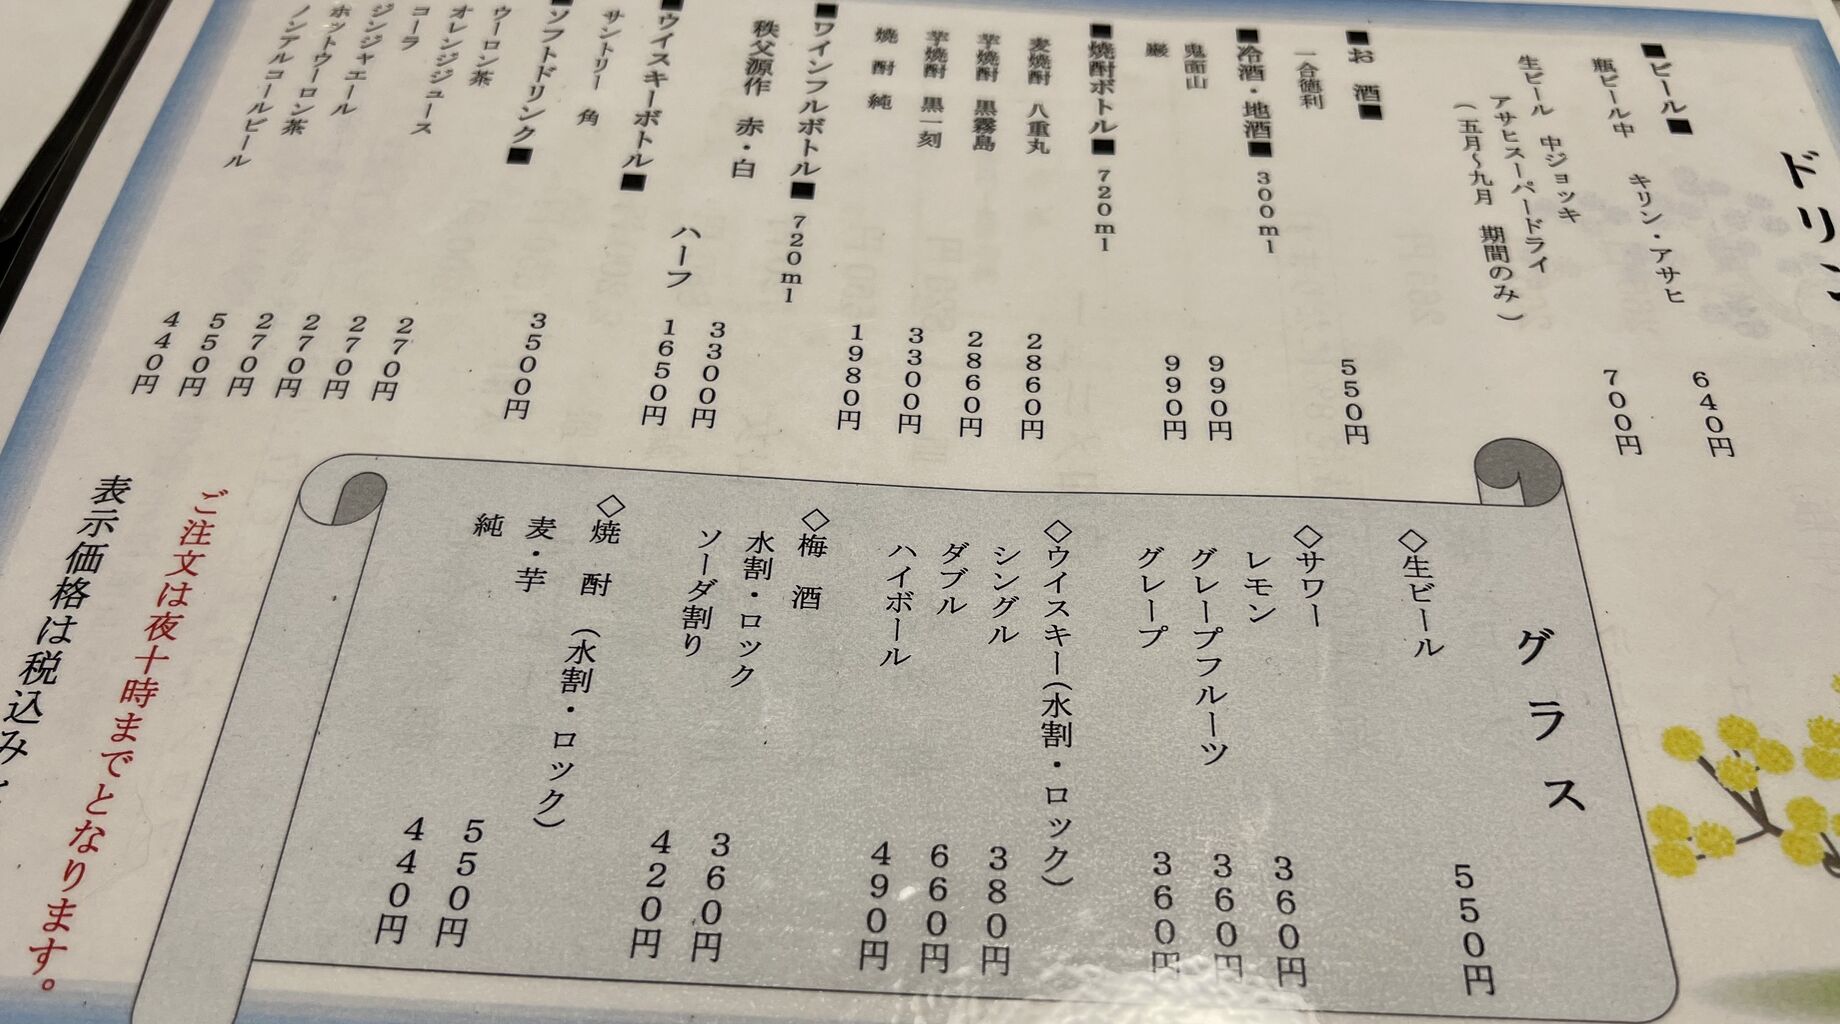 ドリン
■ビール■
瓶ビール中 キリン・アサヒ 640円
生ビール 中ジョッキ 700円
アサヒスーパードライ
(五月~九月 期間のみ)
■お 酒■
一合徳利 550円
■冷酒・地酒■300ml
鬼面山 990円
巖 990円
■焼酎ボトル■720ml
麦焼酎 八重丸 2860円
芋焼酎 黒霧島 2860円
芋焼酎 黒一刻 3300円
焼 酎 純 1980円
■ワインフルボトル■720ml
秩父源作 赤・白 3300円
ハーフ 1650円
■ウイスキーボトル■
サントリー 角 3500円
■ソフトドリンク■
ウーロン茶 270円
オレンジジュース 270円
コーラ 270円
ジンジャエール 270円
ホットウーロン茶 550円
ノンアルコールビール 440円
グラス
◇生ビール 550円
◇サワー
レモン 360円
グレープフルーツ 360円
グレープ 360円
◇ウイスキー(水割・ロック)
シングル 380円
ダブル 660円
ハイボール 490円
◇梅 酒
水割・ロック 360円
ソーダ割り 420円
◇焼 酎 (水割・ロック)
麦・芋 550円
純 440円
ご注文は夜十時までとなります。
表示価格は税込み